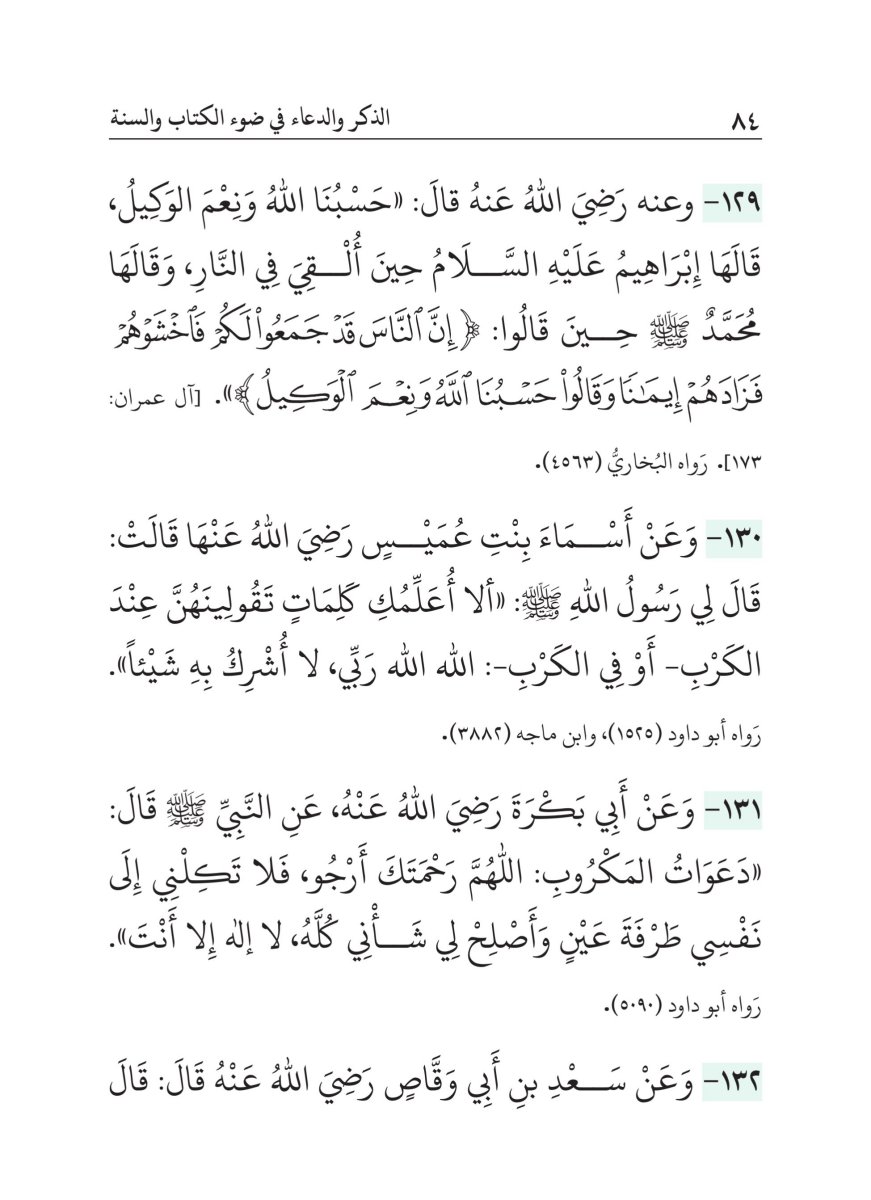 ٨٤ الذكر والدعاء في ضوء الكتاب والسنة
١٢٩- وعنه رَضِيَ اللهُ عَنهُ قالَ: «حَسْبُنَا اللهُ وَنِعْمَ الوَكِيلُ،
قَالَهَا إِبْرَاهِيمُ عَلَيْهِ السَّلَامُ حِينَ أُلْقِيَ فِي النَّارِ، وَقَالَهَا
مُحَمَّدٌ ﷺ حِينَ قَالُوا: ﴿إِنَّ ٱلنَّاسَ قَدۡ جَمَعُواْ لَكُمۡ فَٱخۡشَوۡهُمۡ
فَزَادَهُمۡ إِيمَٰنٗا وَقَالُواْ حَسۡبُنَا ٱللَّهُ وَنِعۡمَ ٱلۡوَكِيلُ﴾». [آل عمران:
١٧٣]. رَواه البُخاريُّ (٤٥٦٣).
١٣٠- وَعَنْ أَسْمَاءَ بِنْتِ عُمَيْسٍ رَضِيَ اللهُ عَنْهَا قَالَتْ:
قَالَ لِي رَسُولُ اللهِ ﷺ: «ألا أُعَلِّمُكِ كَلِمَاتٍ تَقُولِينَهُنَّ عِنْدَ
الكَرْبِ- أَوْ فِي الكَرْبِ-: الله الله رَبِّي، لا أُشْرِكُ بِهِ شَيْئاً».
رَواه أبو داود (١٥٢٥)، وابن ماجه (٣٨٨٢).
١٣١- وَعَنْ أَبِي بَكْرَةَ رَضِيَ اللهُ عَنْهُ، عَنِ النَّبِيِّ ﷺ قَالَ:
«دَعَوَاتُ المَكْرُوبِ: اللّٰهُمَّ رَحْمَتَكَ أَرْجُو، فَلا تَكِلْنِي إِلَى
نَفْسِي طَرْفَةَ عَيْنٍ وَأَصْلِحْ لِي شَأْنِي كُلَّهُ، لا إِلٰه إِلا أَنْتَ».
رَواه أبو داود (٥٠٩٠).
١٣٢- وَعَنْ سَعْدِ بنِ أَبِي وَقَّاصٍ رَضِيَ اللهُ عَنْهُ قَالَ: قَالَ